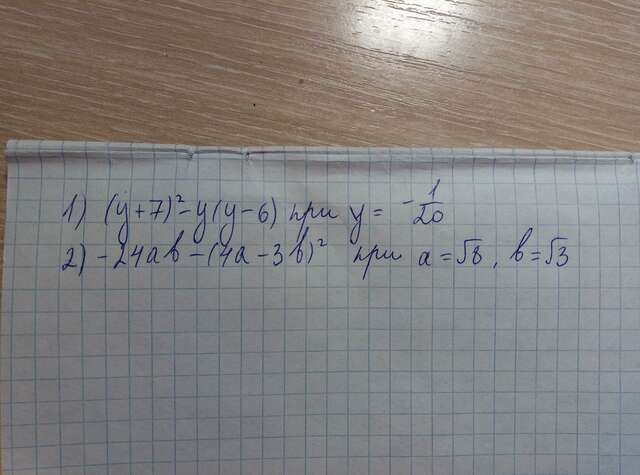 1) (y+7)²-y(y-6) при y = -1/20
2) -24ab-(4a-3b)² при a=√8, b=√3